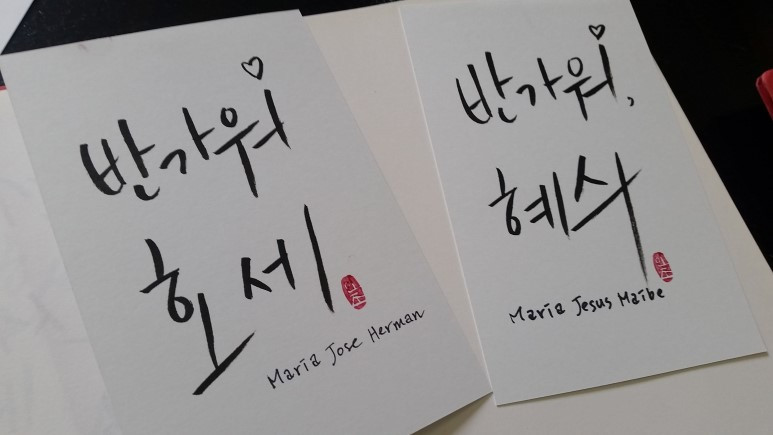 반가워
호세
Maria Jose Herman
반가워,
혜수
Maria Jesus Maibe